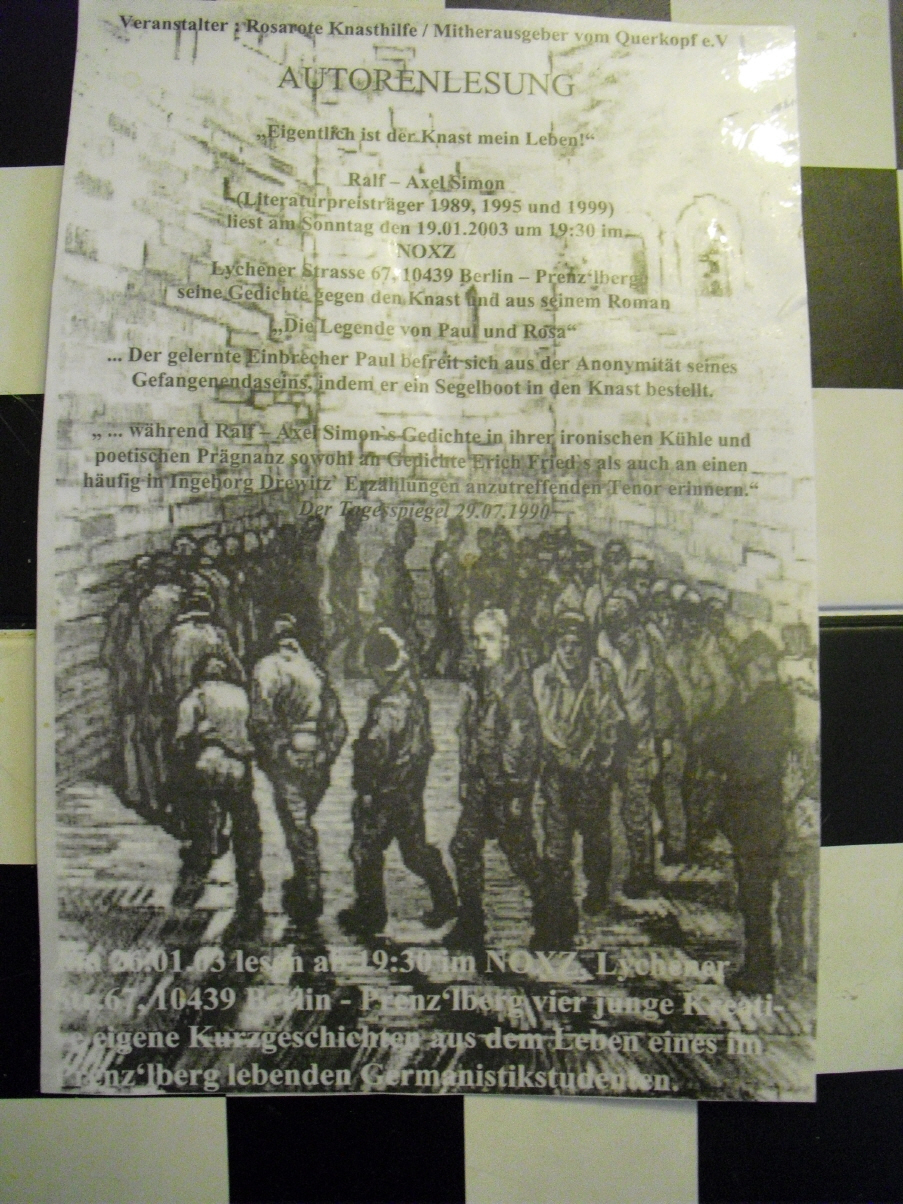 Veranstalter : Rosarote Knasthilfe / Mitherausgeber vom Querkopf e.V
AUTORENLESUNG
„Eigentlich ist der Knast mein Leben!“
Ralf – Axel Simon
(Literaturpreisträger 1989, 1995 und 1999)
liest am Sonntag den 19.01.2003 um 19:30 im
NOXZ
Lychener Strasse 67, 10439 Berlin – Prenz‘lberg
seine Gedichte gegen den Knast und aus seinem Roman
„Die Legende von Paul und Rosa“
... Der gelernte Einbrecher Paul befreit sich aus der Anonymität seines
Gefangenendaseins, indem er ein Segelboot in den Knast bestellt.
„ ... während Ralf – Axel Simon`s Gedichte in ihrer ironischen Kühle und
poetischen Prägnanz sowohl an Gedichte Erich Fried`s als auch an einen
häufig in Ingeborg Drewitz’ Erzählungen anzutreffenden Tenor erinnern.“
Der Tagesspiegel 29.07.1990
26.01.03 lesen ab 19:30 im NOXZ, Lychener
Str.67, 10439 Berlin - Prenz‘lberg vier junge Kreati-
e eigene Kurzgeschichten aus dem Leben eines im
renz‘lberg lebenden Germanistikstudenten.